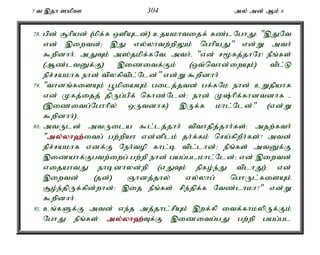 7 வ இதா ஸமிஊ 304 அல் அன் ஆம் 6
78. பின் சூரியன் (மிக்க ஒளியுடன்) உதயமாவதைக் கண்டபோது "இதுவே
என் இறைவன்; இது எல்லாவற்றிலும் பெரியது" என்று அவர்
கூறினார். அதுவும் அஸ்தமிக்கவே அவர், "என் சமூகத்தாரே! நீங்கள்
(ஆண்டவனுக்கு) இணைவைக்கும் (ஒவ்வொன்றையும்) விட்டு
நிச்சயமாக நான் விலகிவிட்டேன்" என்று கூறினார்.
79. "வானங்களையும் பூமியையும் படைத்தவன் பக்கமே நான் உறுதியாக
என் முகத்தைத் திருப்பிக் கொண்டேன்; நான் முஷ்ரிக்கானவனாக -
(இணைவைப்போரில் ஒருவனாக) இருக்க மாட்டேன்" (என்று
கூறினார்).
80. அவருடன் அவருடைய கூட்டத்தார் விவாதித்தார்கள்; அதற்கவர்
"அல்லாஹ்வைப் பற்றியா என்னிடம் தர்க்கம் செய்கிறீர்கள்? அவன்
நிச்சயமாக எனக்கு நேர்வழி காட்டி விட்டான்; நீங்கள் அவனுக்கு
இணையாக்குபவற்றைப் பற்றி நான் பயப்படமாட்டேன்; என் இறைவன்
எதையாவது நாடினாலன்றி (எதுவும் நிகழ்ந்து விடாது); என்
இறைவன் (தன்) ஞானத்தால் எல்லாப் பொருட்களையும்
சூழ்ந்திருக்கின்றான்; இதை நீங்கள் சிந்திக்க வேண்டாமா?" என்று
கூறினார்.
81. உங்களுக்கு அவன் எந்த அத்தாட்சியும் இறக்கி வைக்காமலிருக்கும்
போது நீங்கள் அல்லாஹ்வுக்கு இணைவைப்பது பற்றி பயப்பட